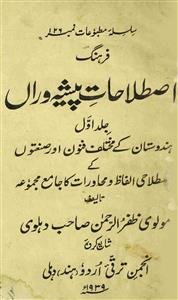 سلسلۂ مطبوعات نمبر ۱۲۶
فرہنگ
اصطلاحات پیشہ وراں
جلد اوّل
ہندوستان کے مختلف فنون اور صنعتوں
کے
اصطلاحی الفاظ و محاورات کا جامع مجموعہ
تالیف
مولوی ظفر الرحمٰن صاحب دہلوی
شایع کردہ
انجمن ترقی اُردو (ہند)، دہلی
۱۹۳۹ء